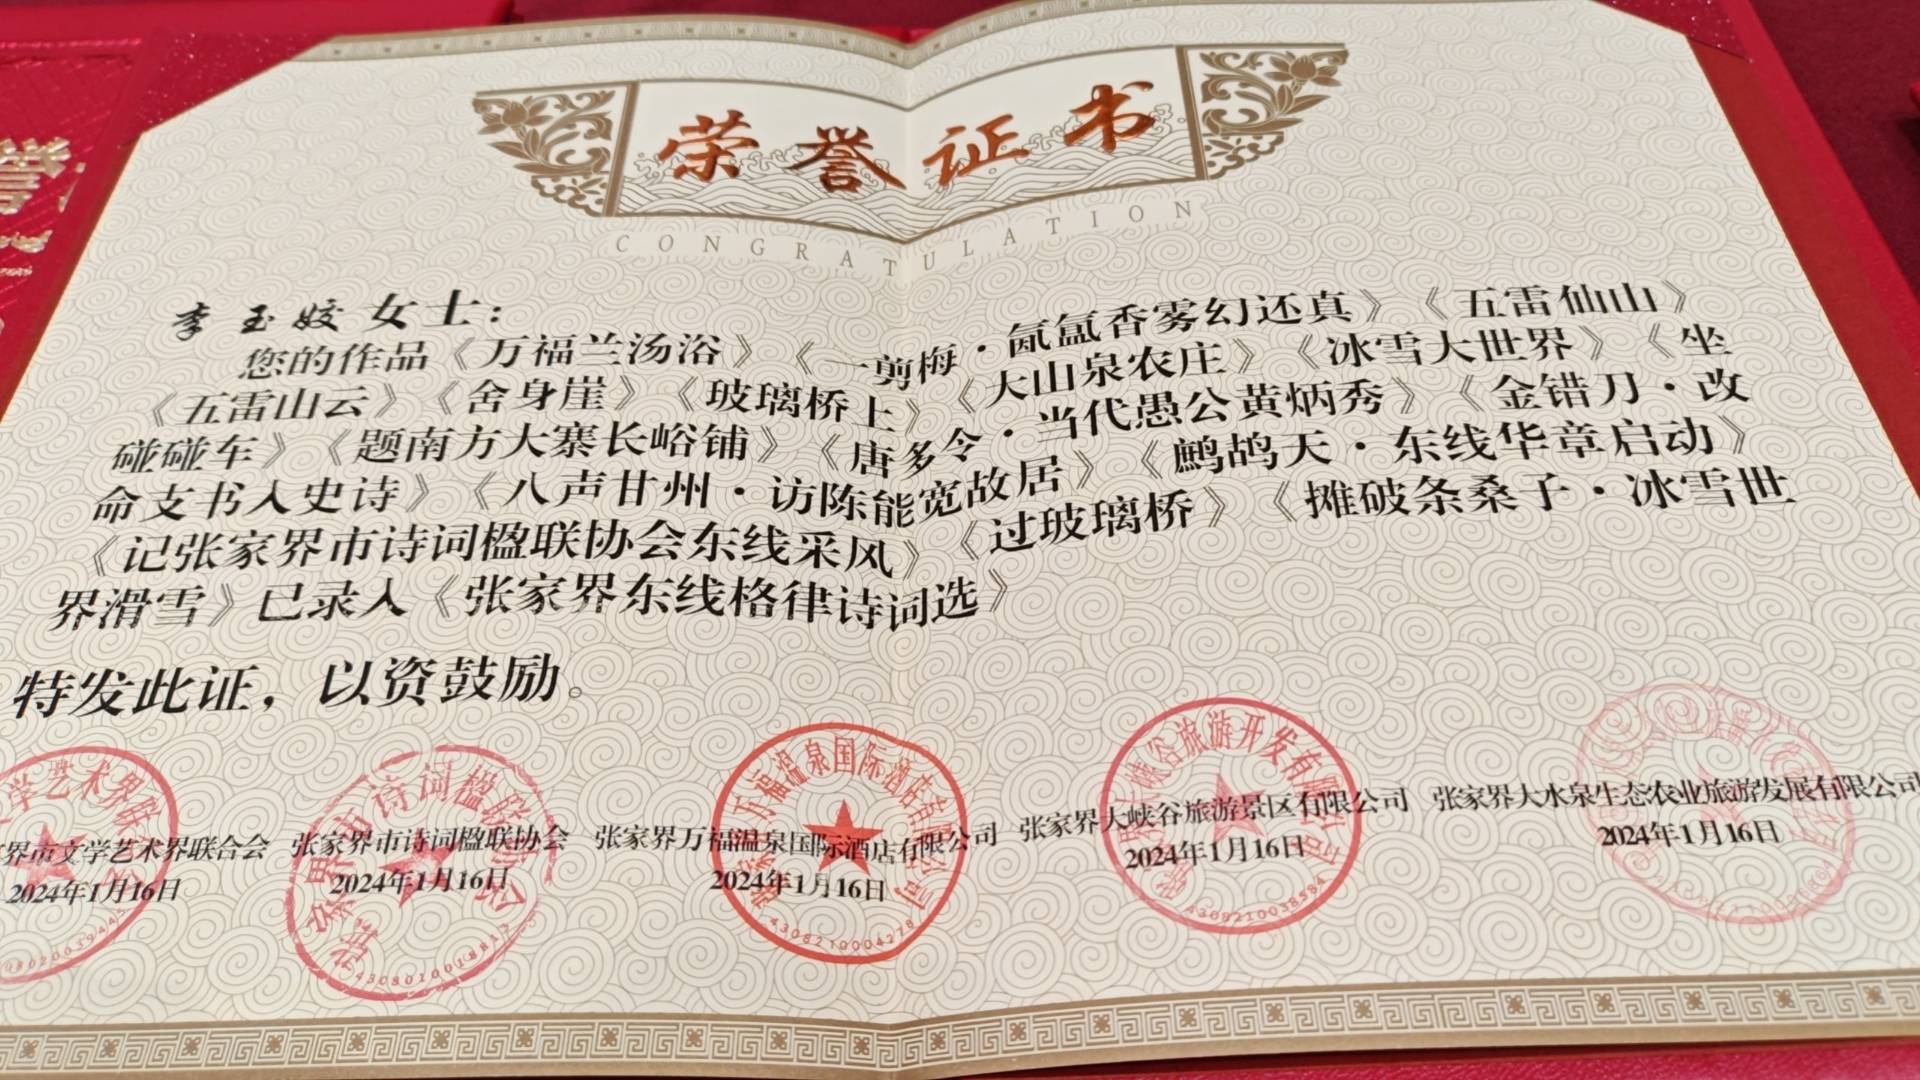 荣誉证书
CONGRATULATION
李玉姣女士：
您的作品《万福兰汤浴》《一剪梅·氤氲香雾幻还真》《五雷仙山》
《五雷山云》《舍身崖》《玻璃桥上》《大山泉农庄》《冰雪大世界》《坐
碰碰车》《题南方大寨长峪铺》《唐多令·当代愚公黄炳秀》《金错刀·改
命支书入史诗》《八声甘州·访陈能宽故居》《鹧鸪天·东线华章启动》
《记张家界市诗词楹联协会东线采风》《过玻璃桥》《摊破条桑子·冰雪世
界滑雪》已录入《张家界东线格律诗词选》
特发此证，以资鼓励。
界市文学艺术界联合会
2024年1月16日
张家界市诗词楹联协会
2024年1月16日
张家界万福温泉国际酒店有限公司
2024年1月16日
张家界大峡谷旅游景区有限公司
2024年1月16日
张家界大水泉生态农业旅游发展有限公司
2024年1月16日
学艺术界联
张家界市诗词楹联协会
4308010018813
万福温泉国际酒店有限公司
4308210004278
大峡谷旅游开发有限公司
4308210038584